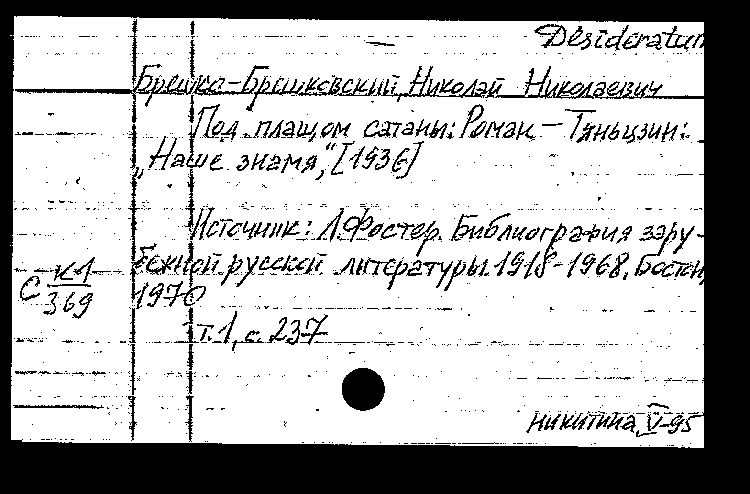 Desideratum
Брешко-Брешковский, Николай Николаевич
Под плащом сатаны: Роман — Тяньцзин:
„Наше знамя,“ [1936]
Источник: Л.Фостер. Библиография зару-
бежной русской литературы. 1918-1968, Бостон,
1970
С К1
369
т.1, с. 237
никитина, V-95